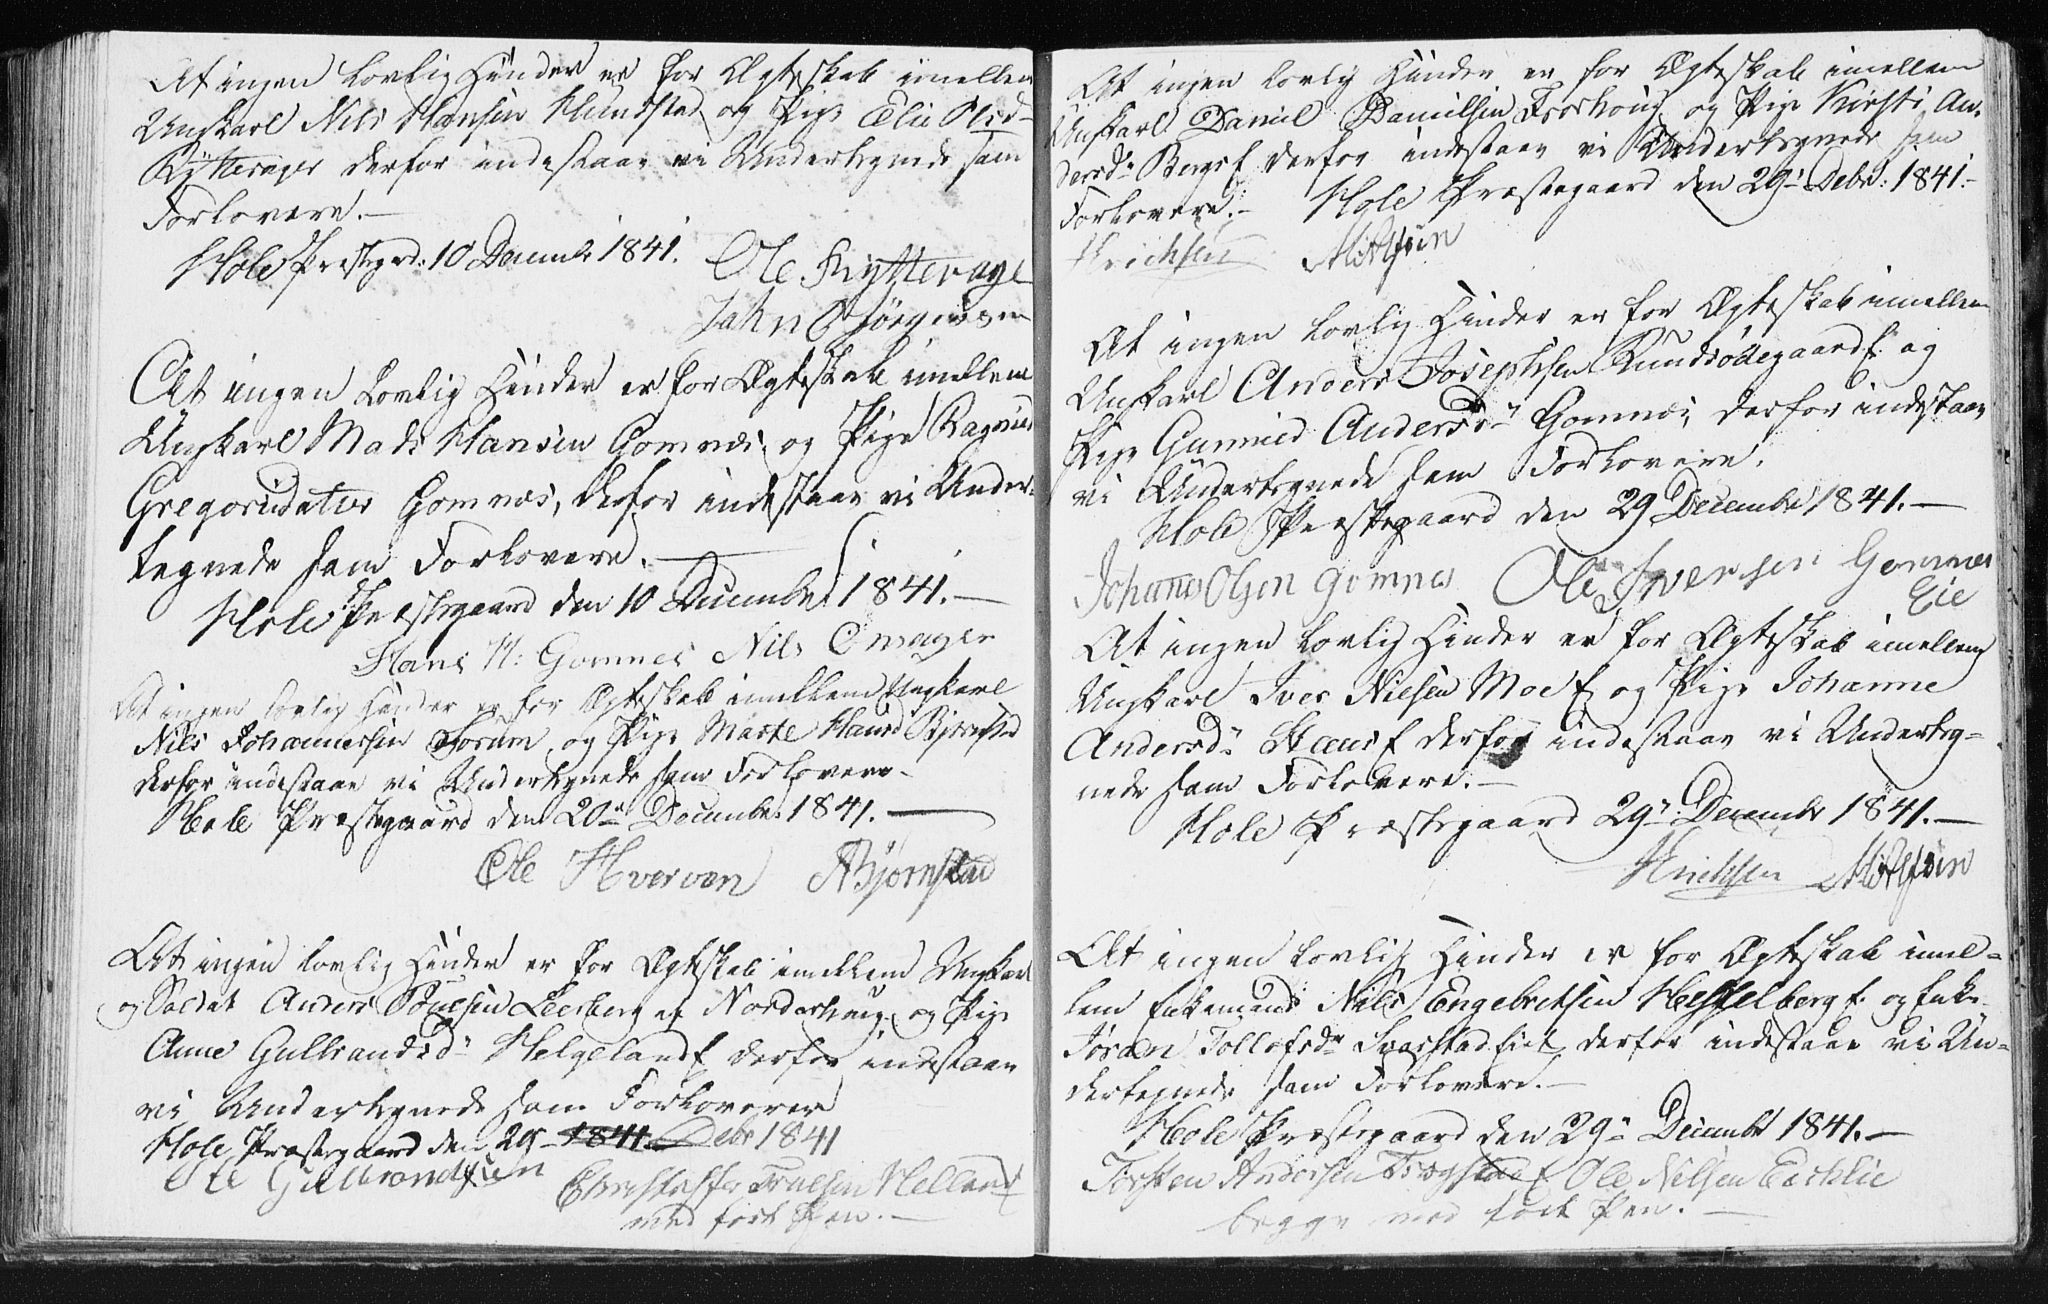 At ingen lovlig Hinder er for Ægteskab imellem
Ungkarl Nils Hansen Mundstad og Pige Elie Olsd
Rytterager derfor indestaar vi Undertegnede som
Forlovere.—
Hole Prestegrd: 10 Decembr 1841.
Ole Rytterage
Jahn Jörgensen
At ingen Lovlig Hinder er for Ægteskab imellem
Ungkarl Mads Hansen Gomnæs og Pige Ragnild
Gregoriidatter Gomnæs, derfor indestaar vi Under-
tegnede som Forlovere.—
Hole Præstegaard den 10 December 1841.—
Hans H: Gomnes Nils
At ingen lovlig Hinder er for Ægteskab imellem Ungkarl
Nils Johannesen Sørum, og Pige Marte Bjørnstad
derfor indestaar vi Undertegnede som Forlovere.—
Hole Præstegaard den 20de Decembr: 1841.—
Ole Hverven ABjørnstad
At ingen lovlig Hinder er for Ægteskab imellem Ungkarl
og Soldat Anders Leerberg af Norderhoug, og Pige
Anne Gulbrandsdr Helgelandf derfor indestaar
vi Undertegnede som Forlovere
Hole Præstegaard den 29 1841. Debr 1841
Ole Gulbrandsen Christoffer Truelsen Helland
med ført Pen.—
At ingen lovlig Hinder er for Ægteskab imellem
Ungkarl Daniel Danielsen og Pige Kirsti An-
dersdr derfor indestaar vi Undertegnede som
Forlovere.— Hole Præstegaard den 29de Debr: 1841.—
At ingen lovlig Hinder er for Ægteskab imellem
Ungkarl Anders Josephsen Rundsødegaardf. og
Pige Gunnild Andersdr Gomnæs, derfor indestaar
vi Undertegnede som Forlovere.
Hole Præstegaard den 29 Decembr 1841.—
Johanes Olsen Gomnes Ole Iversen Gomnes
Eie
At ingen lovlig Hinder er for Ægteskab imellem
Ungkarl Iver Nielsen Moe f og Pige Johanne
Andersdr derfor indestaar vi Underteg-
nede som Forlovere.—
Hole Præstegaard 29de Decembr 1841.—
At ingen lovlig Hinder er for Ægteskab imel-
lem Enkemand Nils Engebretsen Hesselberg f. og Enke
Jøran Tollefsdr Svarstad Eiet, derfor indestaar vi Un-
dertegnede som Forlovere.—
Hole Præstegaard den 29de Decembr 1841.—
Torsten Andersen Ole Nilsen
begge med ført Pen.—